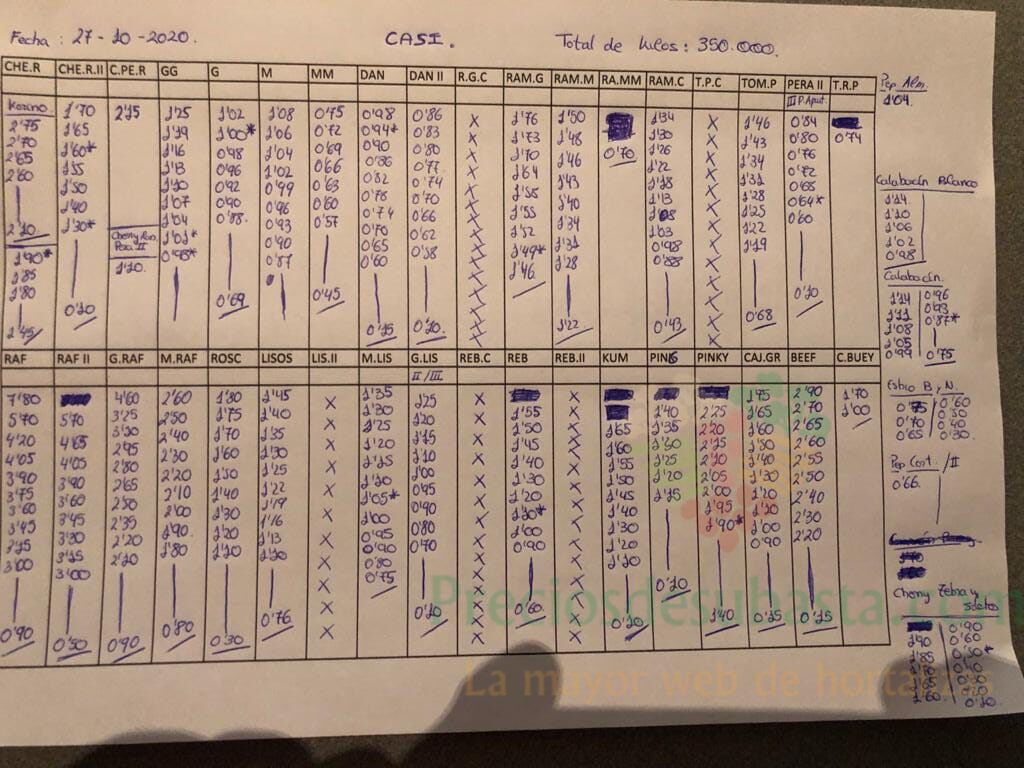 Fecha : 27-10-2020. CASI. Total de kilos: 350.000.
CHE.R CHE.R.II C.PE.R GG G M MM DAN DAN II R.G.C RAM.G RAM.M RA.MM RAM.C T.P.C TOM.P PERA II T.R.P
Pep. Alm.
1'04.
2'75 1'70 2'15 1'25 1'02 1'08 0'75 0'98 0'86 X 1'76 1'50 1'34 X 1'46 0'84
2'70 1'65 1'19 1'00* 1'06 0'72 0'94* 0'83 X 1'73 1'48 1'30 X 1'43 0'80 0'74
2'65 1'60* 1'16 0'98 1'04 0'69 0'90 0'80 X 1'70 1'46 0'70 1'26 X 1'34 0'76
2'60 1'55 1'13 0'96 1'02 0'66 0'86 0'77 X 1'64 1'43 1'22 X 1'31 0'72
1'50 1'10 0'92 0'99 0'63 0'82 0'74 X 1'58 1'40 1'18 X 1'28 0'68
1'40 1'07 0'90 0'96 0'60 0'78 0'70 X 1'55 1'34 1'13 X 1'25 0'64*
2'10 1'30* 1'04 0'88. 0'93 0'57 0'74 0'66 X 1'52 1'31 1'08 X 1'22 0'60
1'90* 1'01* 0'90 0'70 0'62 X 1'49* 1'28 1'03 X 1'19
1'85 0'98* 0'87 0'65 0'58 X 1'46 0'98 X
1'80 1'10. 0'60 X 0'88 X
1'45 0'10 0'69 0'45 0'15 0'10. X 1'22 0'43 X 0'68 0'10
Calabacín Blanco
1'14
1'10
1'06
1'02
0'98
Calabacín.
1'14 0'96
1'11 0'93
1'08 0'87*
1'05
0'99 0'75
RAF RAF II G.RAF M.RAF ROSC LISOS LIS.II M.LIS G.LIS REB.C REB REB.II KUM PINK PINKY CAJ.GR BEEF C.BUEY
II / III
7'80 4'60 2'60 1'80 1'45 X 1'35 1'25 X X 1'75 2'90 1'70
5'70 5'70 3'25 2'50 1'75 1'40 X 1'30 1'20 X 1'55 X 1'40 2'25 1'65 2'70 1'00
4'20 4'65 3'10 2'40 1'70 1'35 X 1'25 1'15 X 1'50 X 1'65 1'35 2'20 1'60 2'65
4'05 4'05 2'95 2'30 1'60 1'30 X 1'20 1'10 X 1'45 X 1'60 1'30 2'15 1'50 2'60
3'90 3'90 2'80 2'20 1'50 1'25 X 1'15 1'00 X 1'40 X 1'55 1'25 2'10 1'40 2'55
3'75 3'60 2'65 2'10 1'40 1'22 X 1'10 0'95 X 1'30 X 1'50 1'20 2'05 1'30 2'50
3'60 3'45 2'50 2'00 1'30 1'19 X 1'05* 0'90 X 1'20 X 1'45 1'15 2'00 1'20 2'40
3'45 3'30 2'35 1'90 1'20 1'16 X 1'00 0'80 X 1'10* X 1'40 1'95 1'10 2'30
3'15 3'15 2'20 1'80 1'10 1'13 X 0'95 0'70 X 1'00 X 1'30 1'90* 1'00 2'20
3'00 3'00 2'10 1'10 X 0'90 X 0'90 X 1'20 0'90
0'80 1'10
0'75
0'90 0'50 0'90 0'80 0'30 0'76 X 0'10 X 0'60 X 0'10 0'10 1'40 0'15 0'15
0'75 0'60
0'70 0'50
0'65 0'40
0'30.
Pep Cort. / II
0'66.
Cherry Zebra y
0'90
1'90 0'60
Preciosdesubasta.com
La mayor web de hortalizas